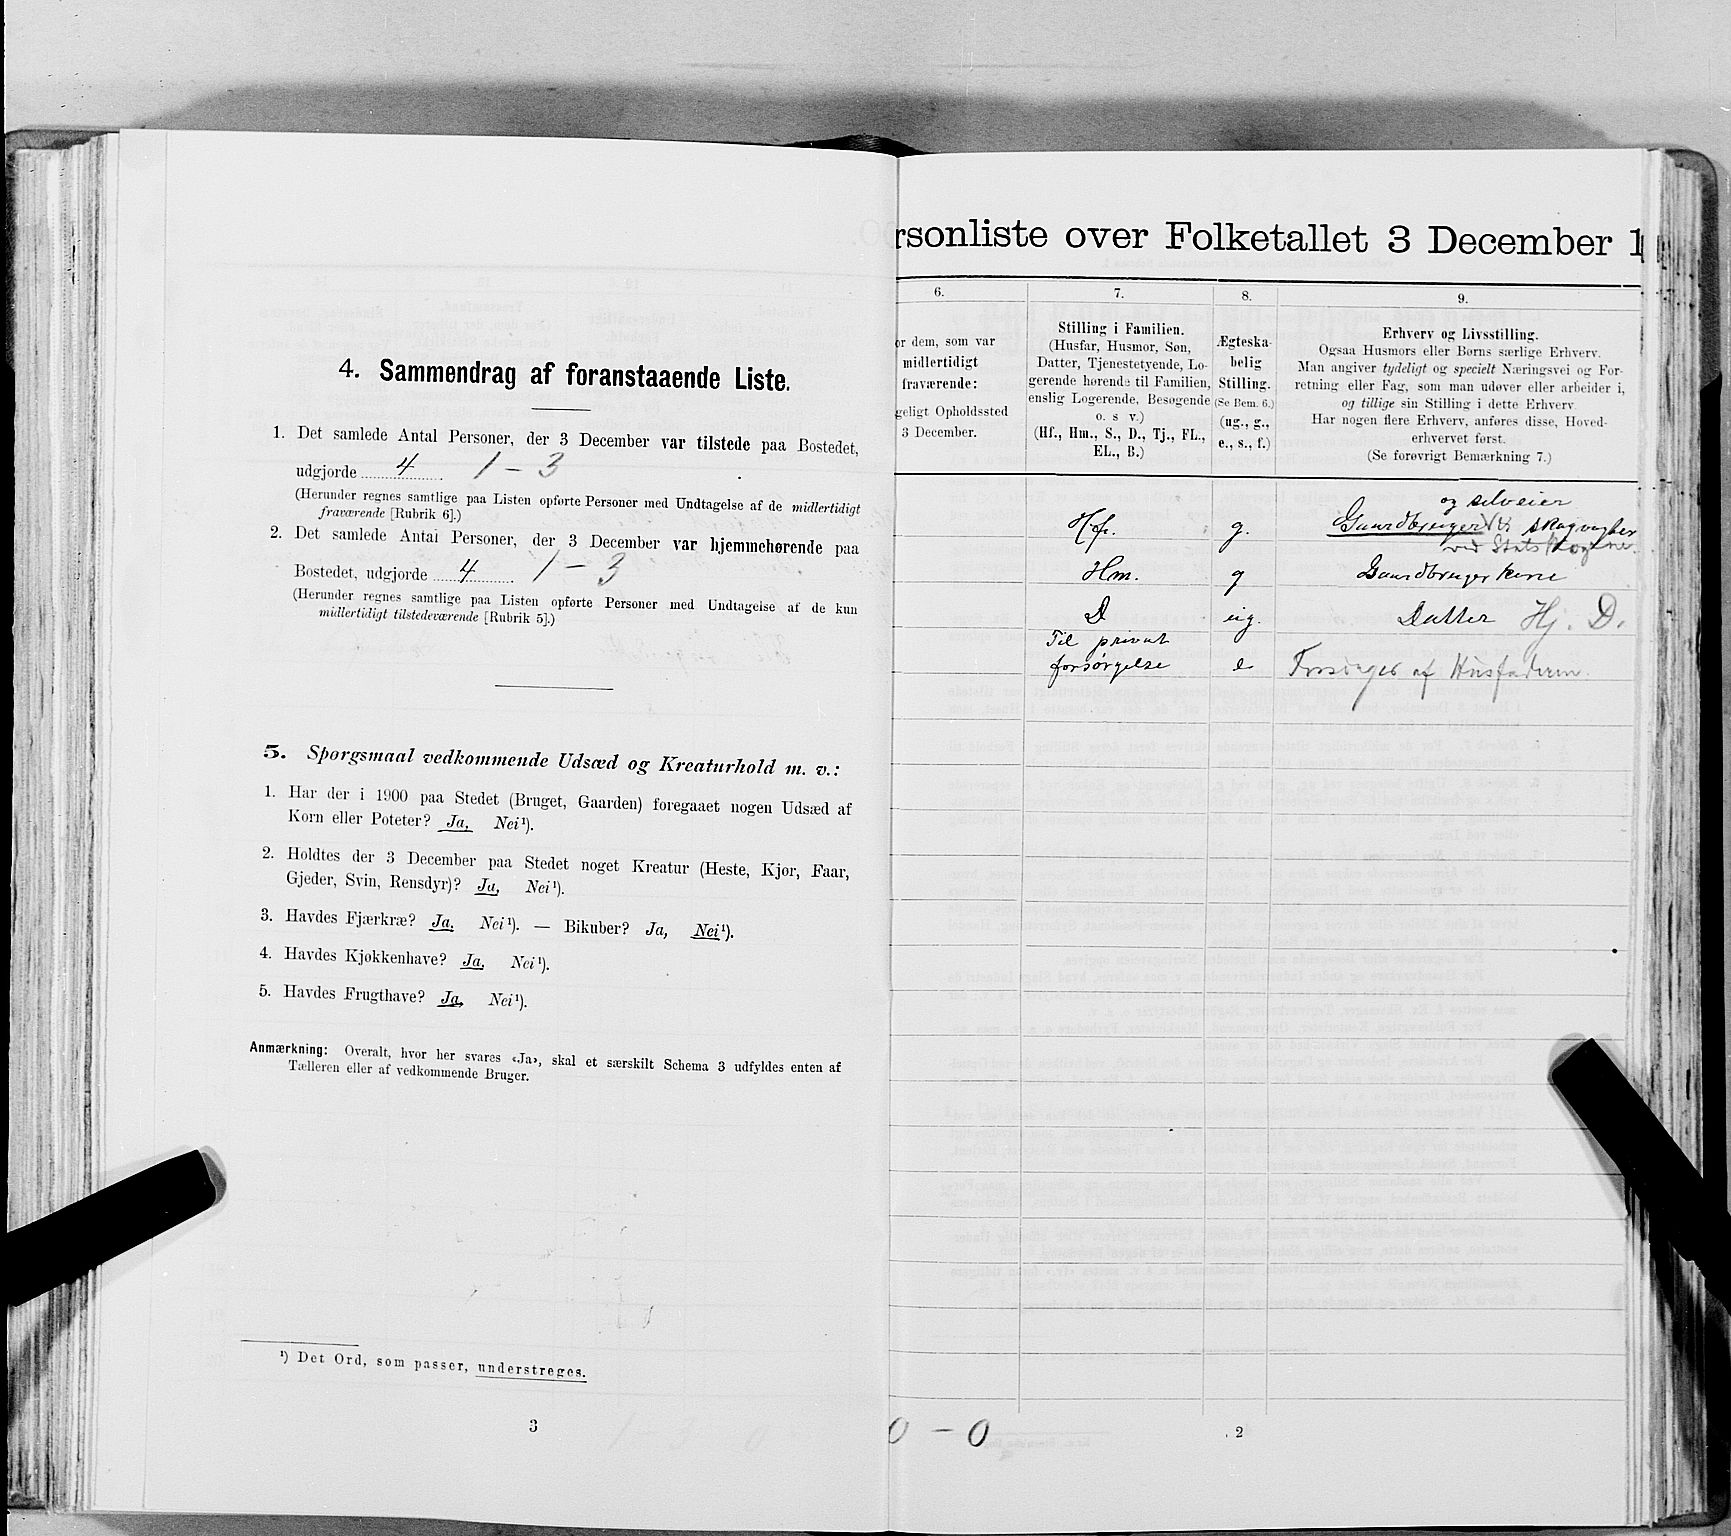 4. Sammendrag af foranstaaende Liste.
1. Det samlede Antal Personer, der 3 December var tilstede paa Bostedet,
udgjorde 4 1 - 3
(Herunder regnes samtlige paa Listen opførte Personer med Undtagelse af de midlertidigt
fraværende [Rubrik 6].)
2. Det samlede Antal Personer, der 3 December var hjemmehørende paa
Bostedet, udgjorde 4 1 - 3
(Herunder regnes samtlige paa Listen opførte Personer med Undtagelse af de kun
midlertidigt tilstedeværende [Rubrik 5].)
5. Spørgsmaal vedkommende Udsæd og Kreaturhold m. v.:
1. Har der i 1900 paa Stedet (Bruget, Gaarden) foregaaet nogen Udsæd af
Korn eller Poteter? Ja, Nei¹).
2. Holdtes der 3 December paa Stedet noget Kreatur (Heste, Kjør, Faar,
Gjeder, Svin, Rensdyr)? Ja, Nei¹).
3. Havdes Fjærkræ? Ja. Nei¹). — Bikuber? Ja, Nei¹).
4. Havdes Kjøkkenhave? Ja. Nei¹).
5. Havdes Frugthave? Ja, Nei¹).
Anmærkning: Overalt, hvor her svares «Ja», skal et særskilt Schema 3 udfyldes enten af
Tælleren eller af vedkommende Bruger.
¹) Det Ord, som passer, understreges.
3
rsonliste over Folketallet 3 December 1
6.
or dem, som var
midlertidigt
fraværende:
geligt Opholdssted
3 December.
7.
Stilling i Familien.
(Husfar, Husmor, Søn,
Datter, Tjenestetyende, Lo-
gerende hørende til Familien,
enslig Logerende, Besøgende
o. s v.)
(Hf., Hm., S., D., Tj., FL.,
EL., B.)
8.
Ægteska-
belig
Stilling.
(Se Bem. 6.)
(ug., g.,
e., s., f.)
9.
Erhverv og Livsstilling.
Ogsaa Husmors eller Børns særlige Erhverv.
Man angiver tydeligt og specielt Næringsvei og For-
retning eller Fag, som man udøver eller arbeider i,
og tillige sin Stilling i dette Erhverv.
Har nogen flere Erhverv, anføres disse, Hoved-
erhvervet først.
(Se forøvrigt Bemærkning 7.)
og selveier
Hf. g. Gaardbruger skogvogter
ved Stats
Hm. g Gaardbrugerkone
D ug. Datter Hj. D.
Til privat
forsørgelse e Forsørges af Husfaderen.
0 - 0
2